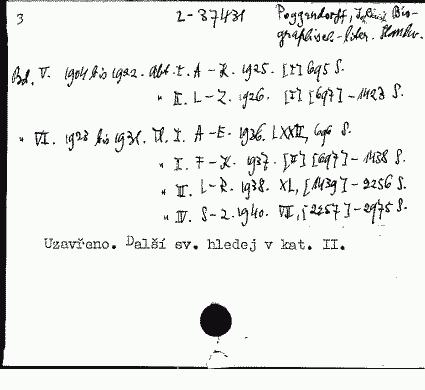 3 2-37431 Poggendorff, Bio-
graphisch.-liter.
Bd. V. 1904 bis 1922. Abt. I. A-K. 1925. [I] 695 S.
" II. L-Z. 1926. [I] [697]-1423 S.
" VI. 1923 bis 1931. I. A-E. 1936. LXXII, 696 S.
" I. F-K. 1937. [II] [697]-1438 S.
" III. L-R. 1938. XL, [1439]-2256 S.
" IV. S-Z. 1940. VII, [2257]-2975 S.
Uzavřeno. Další sv. hledej v kat. II.